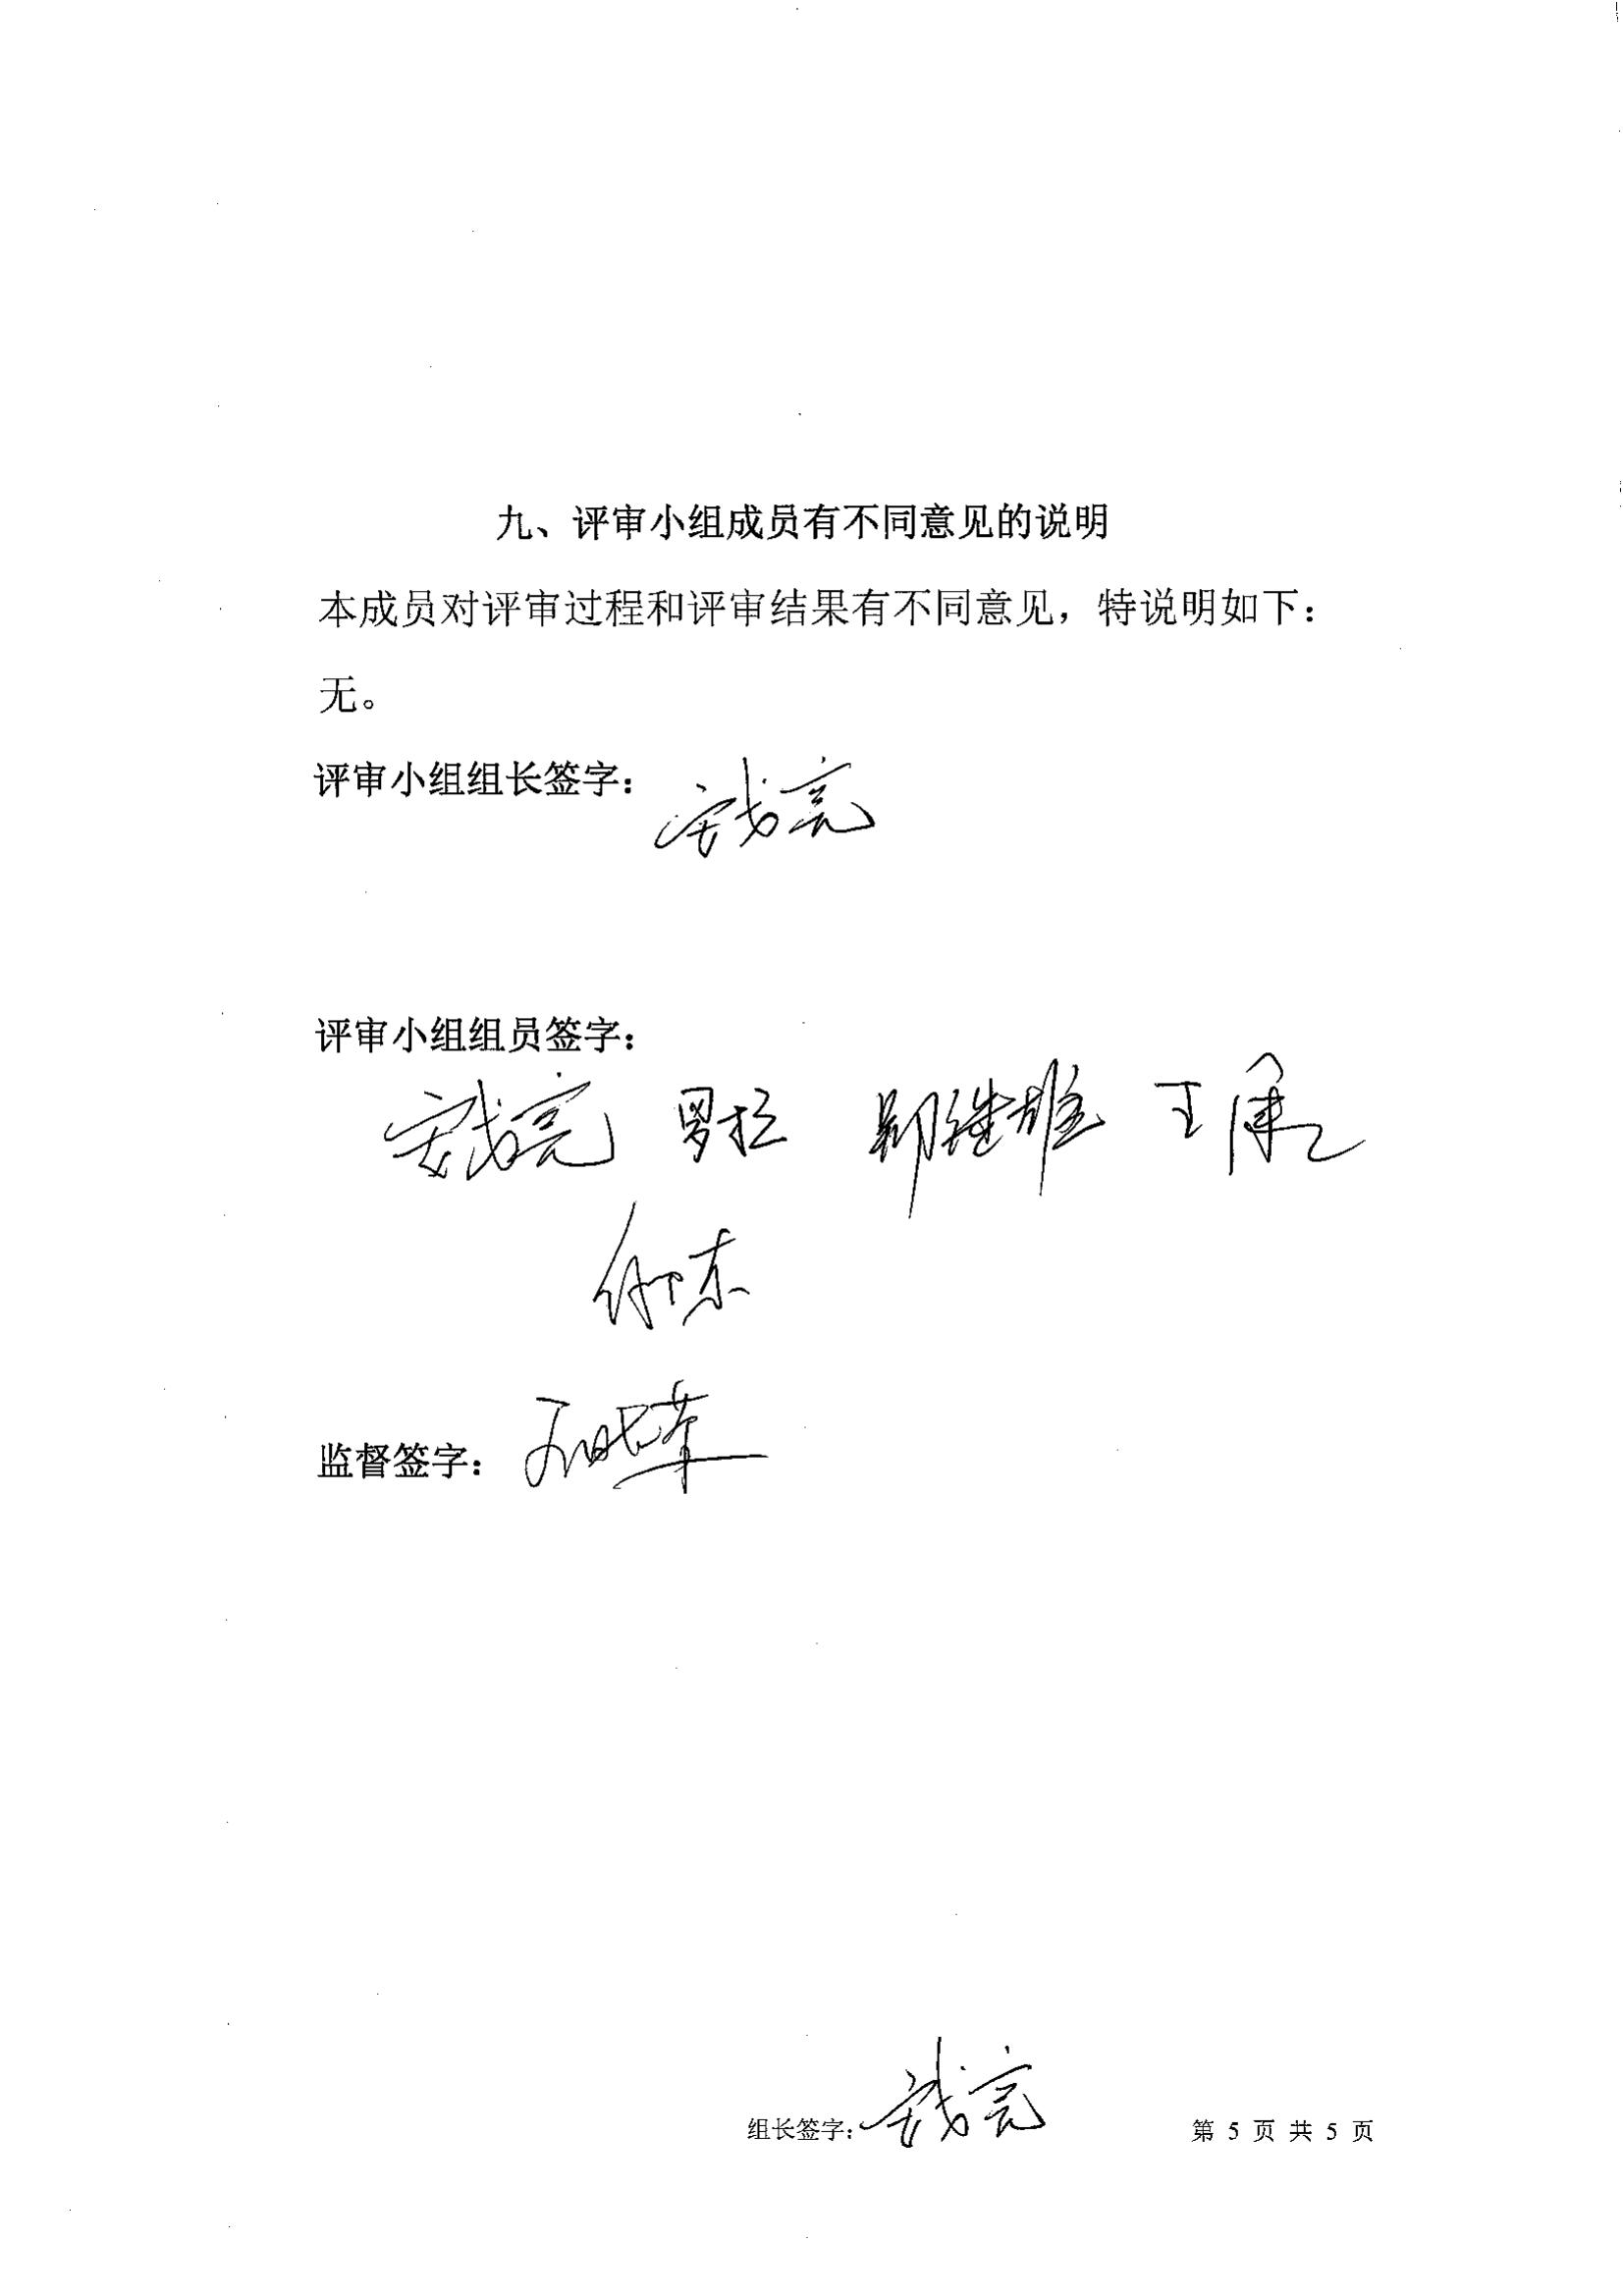 九、评审小组成员有不同意见的说明
本成员对评审过程和评审结果有不同意见，特说明如下：
无。
评审小组组长签字：
评审小组组员签字：
罗拉 郑继雄 王
监督签字：
组长签字： 第 5 页 共 5 页